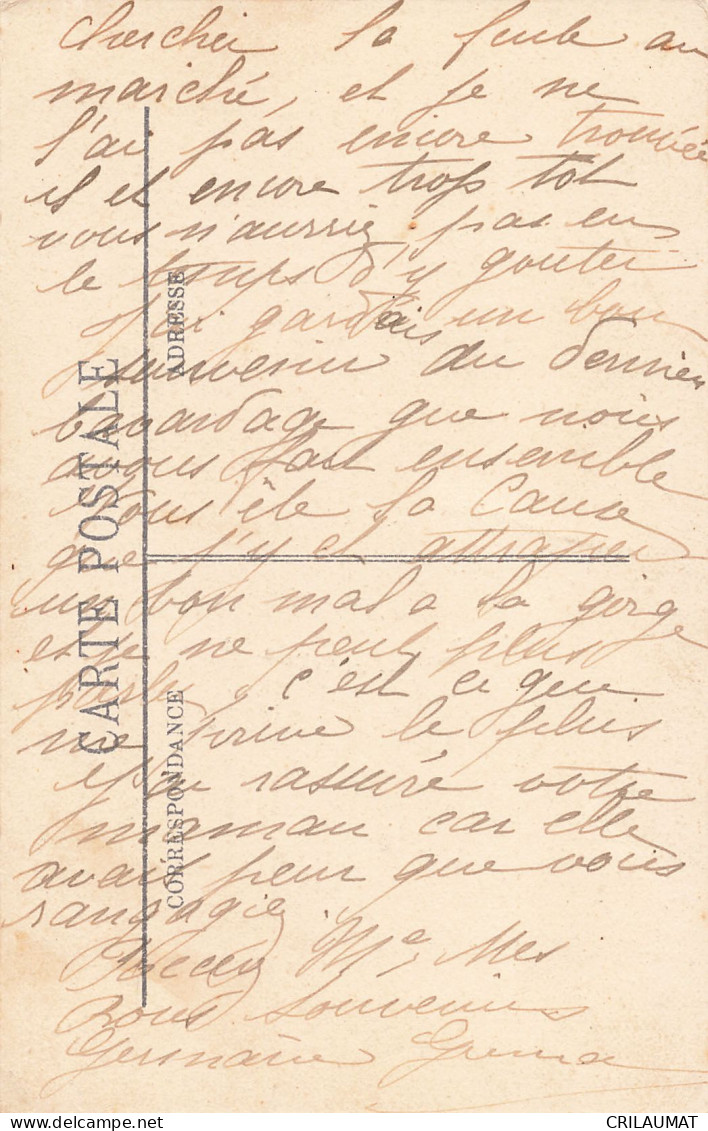 chercher la
marché, et je ne
l'ai pas encore trouvée
il et encore trop tot
vous n'auriez pas eu
le temps d'y gouter
J'ai gardais un bon
souvenir du dernier
bavardage que nous
avons fait ensemble
Vous ête la Cause
que j'y et attraper
un bon mal a la gorge
et je ne peut plus
parler, c'est ce que
me prive le plus
et j'ai rassuré votre
maman car elle
avait peur que vous
Mes
Bons Souvenirs
Germaine
CARTE POSTALE
CORRESPONDANCE
ADRESSE
CRILAUMAT